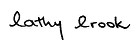 Cathy Crook